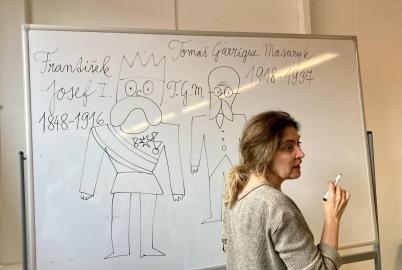 František
Josef I.
1848-1916
Tomáš Garrigue Masaryk
T.G.M
1918-1937